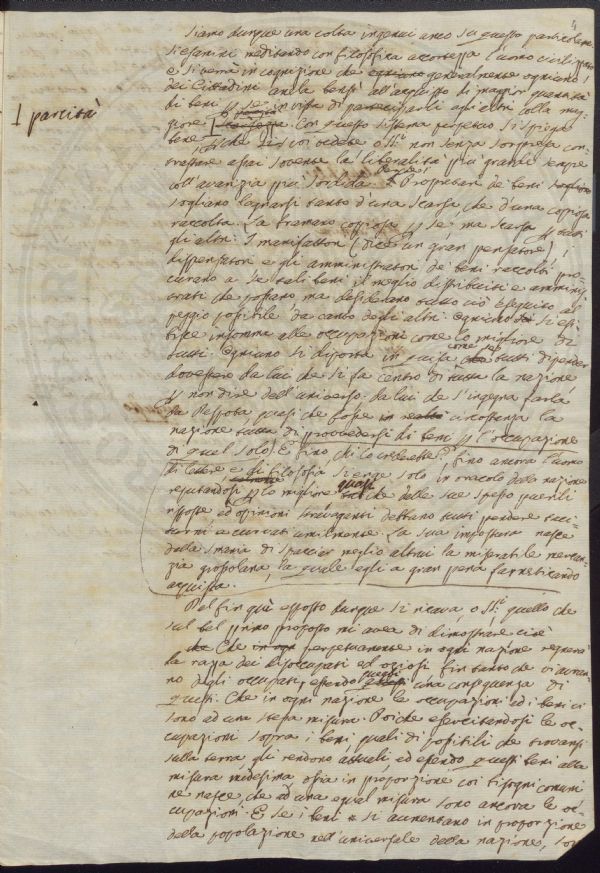 4
Siamo dunque una volta ingenui anco su questo particolare.
Si esamini meditando con filosofica accortezza l'uomo civilizzato
e si verrà in cognizione che generalmente ogniuno
dei Cittadini anela bensì all'acquisto di maggior quantità
di beni per se, in vista di parteciparli agli altri colla mag
giore
⊥ parcità
bene. Con questo sistema perpetuo si spiega
che si vede o Sri non senza sorpresa con
trastare assai sovente la liberalità più grande sempre
coll'avarizia più sordida. Proprietari de beni
sogliono lagnarsi tanto d'una scarsa, che d'una copiosa
raccolta. La bramano copiosa per se, ma scarsa per tutti
gli altri. I manifattori (dice un gran pensatore) i
dispensatori e gli amministratori de' beni raccolti pro
curano a se tali beni il meglio distribuiti e ammini
strati che possano, ma desiderano tutto ciò eseguito al
peggio possibile da canto degli altri. Ogniuno si esi
bisce insomma alle occupazioni come lo migliore di
tutti. Ogniuno si diporta in guisa come se tutti dipender
dovessero da lui che si fa centro di tutta la nazione
per non dire dell'universo. da lui che s'ingegna farla
da despota quasi che fosse in circostanza la
nazione tutta di provvedersi di beni per l'occupazione
di quel solo. E fino, chi lo crederebbe?, fino ancora l'uomo
di lettere e di filosofia si erge solo in oracolo della nazione
reputandosi per lo migliore quasi che delle sue spesso puerili
risposte ed opinioni stravaganti debbano tutti pendere taci
turni e curvati umilmente. La sua impostura nasce
dalla smania di spacciar meglio altrui la miserabile mercan
zia grossolana, la quale egli a gran pena farneticando
acquista.
Dal fin quì esposto dunque si ricava, o Sri quello che
sul bel primo proposto mi avea di dimostrare cioè
Che perpetuamente in ogni nazione regnerà
la razza dei disoccupati ed oziosi fin tanto che vi avran
no degli occupati, essendo quegli una conseguenza di
questi. Che in ogni nazione le occupazioni ed i beni ci
sono ad una stessa misura. Poiche esercitandosi le oc
cupazioni sopra i beni, quali di possibili che trovansi
sulla terra gli rendono attuali, ed essendo questi beni alla
misura medesima ossia in proporzione coi bisogni comuni
ne nasce, che ad una egual misura sono ancora le oc
cupazioni. E se i beni si aumentano in proporzione
della popolazione nell'universale della nazione,